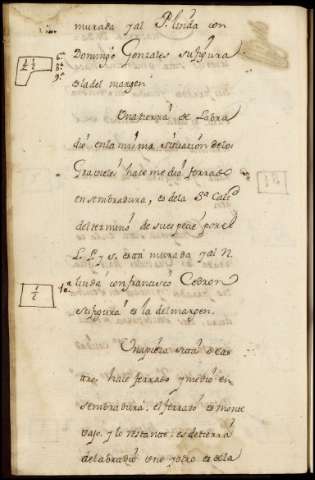 murada y al P. linda con
Domingo Gonzales su figura
es la del margen
Una pieza de Labra
dio en la misma situacion de los
hace medio ferrado
en sembradura, es de la Sª Calidª
del termino de su especie por el
L. P. y S. está murada y al N.
linda con francisco Cebron
su figura es la del margen.
Una pieza sita
hace ferrado y medio en
sembradura. el ferrado es monte
vajo, y lo restante es de tierra
de labradio uno y otro es de la